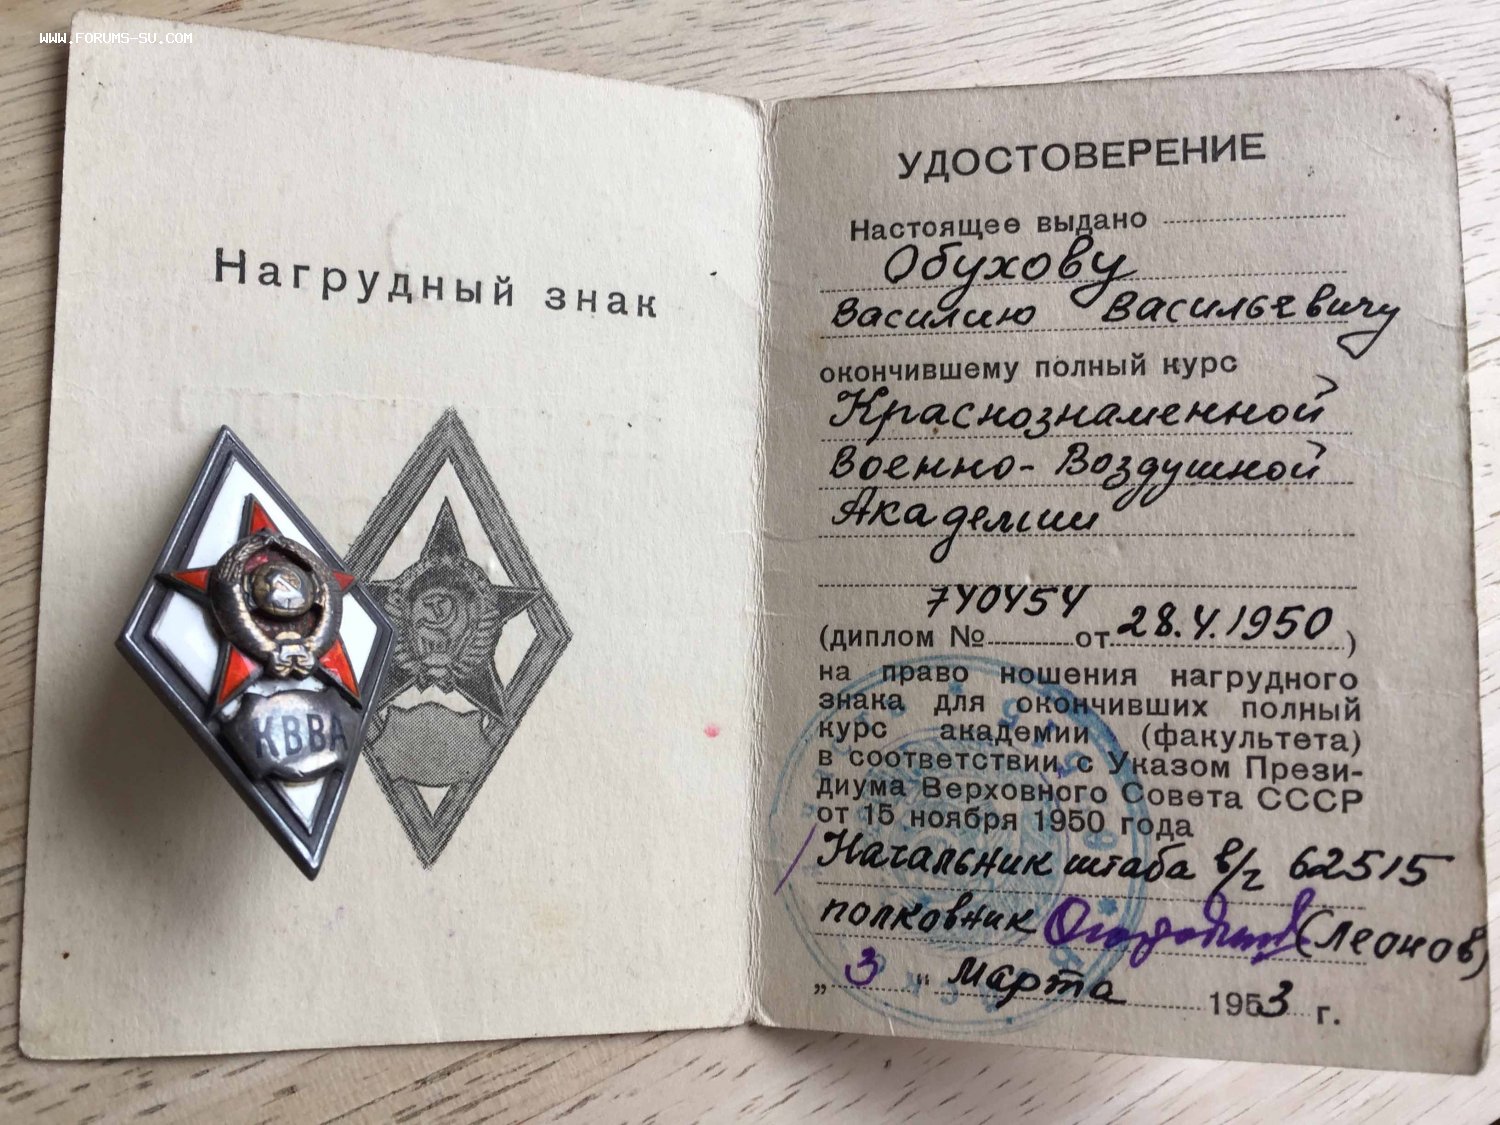 WWW.FORUMS-SU.COM
Нагрудный знак
КВВА
УДОСТОВЕРЕНИЕ
Настоящее выдано
Обухову
Василию Васильевичу
окончившему полный курс
Краснознаменной
Военно-Воздушной
Академии
(диплом № 740454 от 28.4.1950)
на право ношения нагрудного
знака для окончивших полный
курс академии (факультета)
в соответствии с Указом Прези-
диума Верховного Совета СССР
от 15 ноября 1950 года
Начальник штаба в/г 62515
полковник (Леонов)
„3" Марта 1953 г.